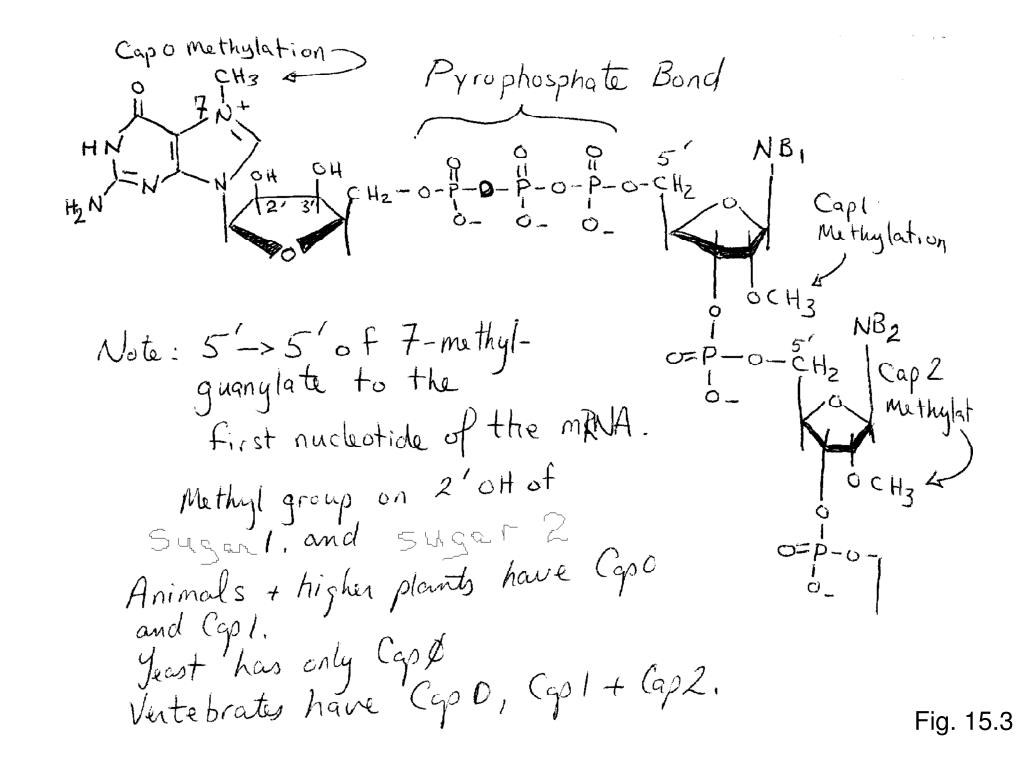 Cap 0 Methylation
CH3
Pyrophosphate Bond
O
7
N
+
HN
N
N
H2N
OH
OH
2'
3'
O
CH2-O-P-O-P-O-P-O-CH2
O
O
O
O-
O-
O-
5'
NB1
O
Cap1
Methylation
OCH3
O
O=P-O-CH2
O-
5'
NB2
O
Cap 2
Methylat
OCH3
O
O=P-O-
O-
Note: 5'->5' of 7-methyl-
guanylate to the
first nucleotide of the mRNA.
Methyl group on 2' OH of
Sugar 1. and sugar 2
Animals + higher plants have Cap 0
and Cap 1.
Yeast has only Cap Ø
Vertebrates have Cap 0, Cap 1 + Cap 2.
Fig. 15.3